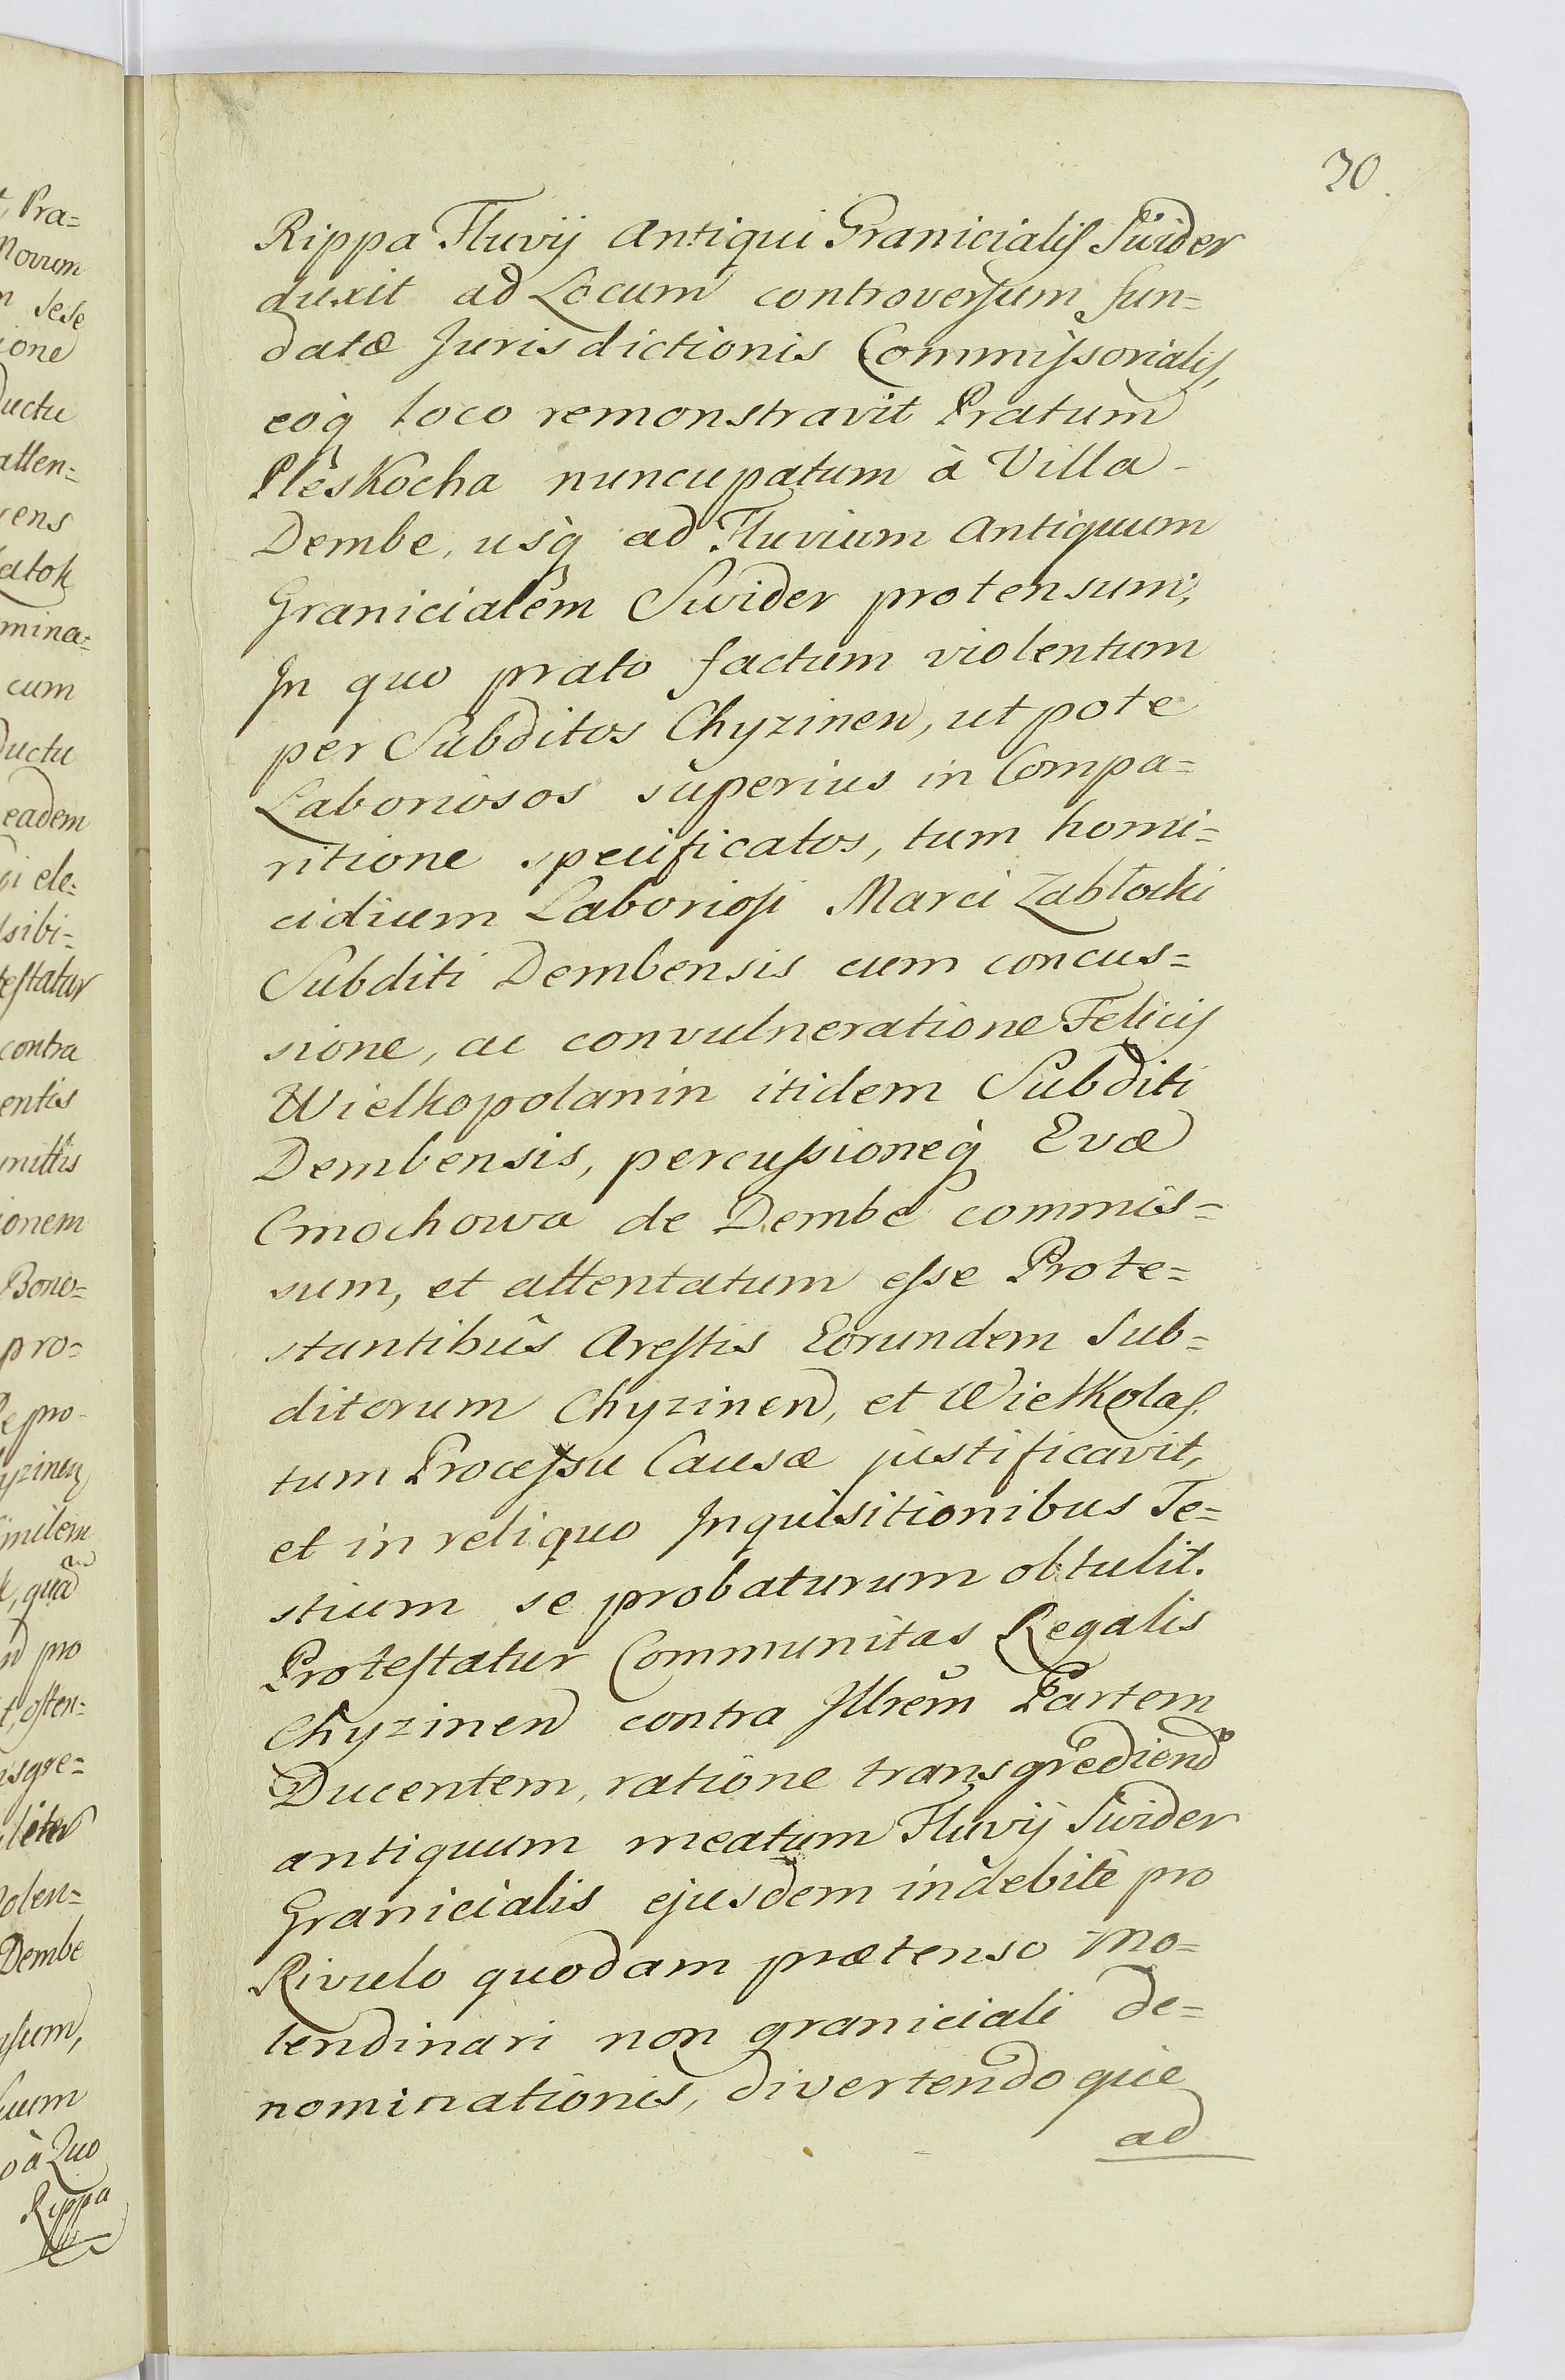 30.
Rippa Fluvij Antiqui Granicialis Swider
duxit ad Locum controversum fun=
datæ Jurisdictionis Commissorialis,
eoq̀ loco remonstravit Pratum
Pleskocha nuncupatum à Villa
Dembe, usq̀ ad Fluvium Antiquum
Granicialem Swider protensum;
In quo prato factum violentum
per Subditos Chyzinen, ut pote
Laboriosos superius in Compa=
ritione specificatos, tum homi=
cidium Laboriosi Marci Zabłocki
Subditi Dembensis cum concus=
sione, ac convulneratione Felicis
Wielkopolanin itidem Subditi
Dembensis, percussioneq̀ Evæ
Cmochowa de Dembe commis=
sum, et attentatum esse Prote=
stantibus Arestis Eorundem Sub=
ditorum Chyzinen, et Wielkolas.
tum Processu Causæ justificavit,
et in reliquo Inquisitionibus Te=
stium se probaturum obtulit.
Protestatur Communitas Regalis
Chyzinen contra Illrem Partem
Ducentem, ratione transgrediend
antiquum meatum Fluvij Swider
Granicialis ejusdem indebitè pro
Rivulo quodam prætenso Mo=
lendinari non graniciali de=
nominationis, divertendoque
ad
t, Pra=
Novum
n sese
ione
ductu
atten=
cens
latok
mina=
cum
ductu
eadem
ele=
sibi=
testatur
contra
entis
mittis
ionem
Bono=
pro=
e pro=
yzinen
similem
, quâ
pro
t, osten=
nsgre=
liter
olen=
Dembe
nsum,
uum
o à Quo
Rippa